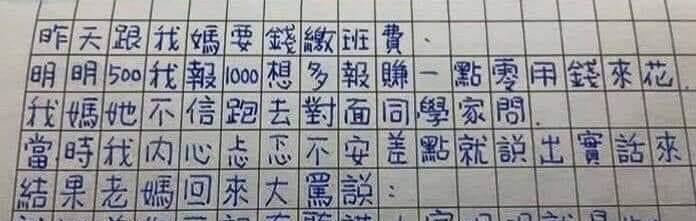 昨天跟我媽要錢繳班費、
明明500我報1000想多報賺一點零用錢來花
我媽她不信跑去對面同學家問.
當時我內心忐忑不安差點就説出實話來
結果老媽回來大罵説: